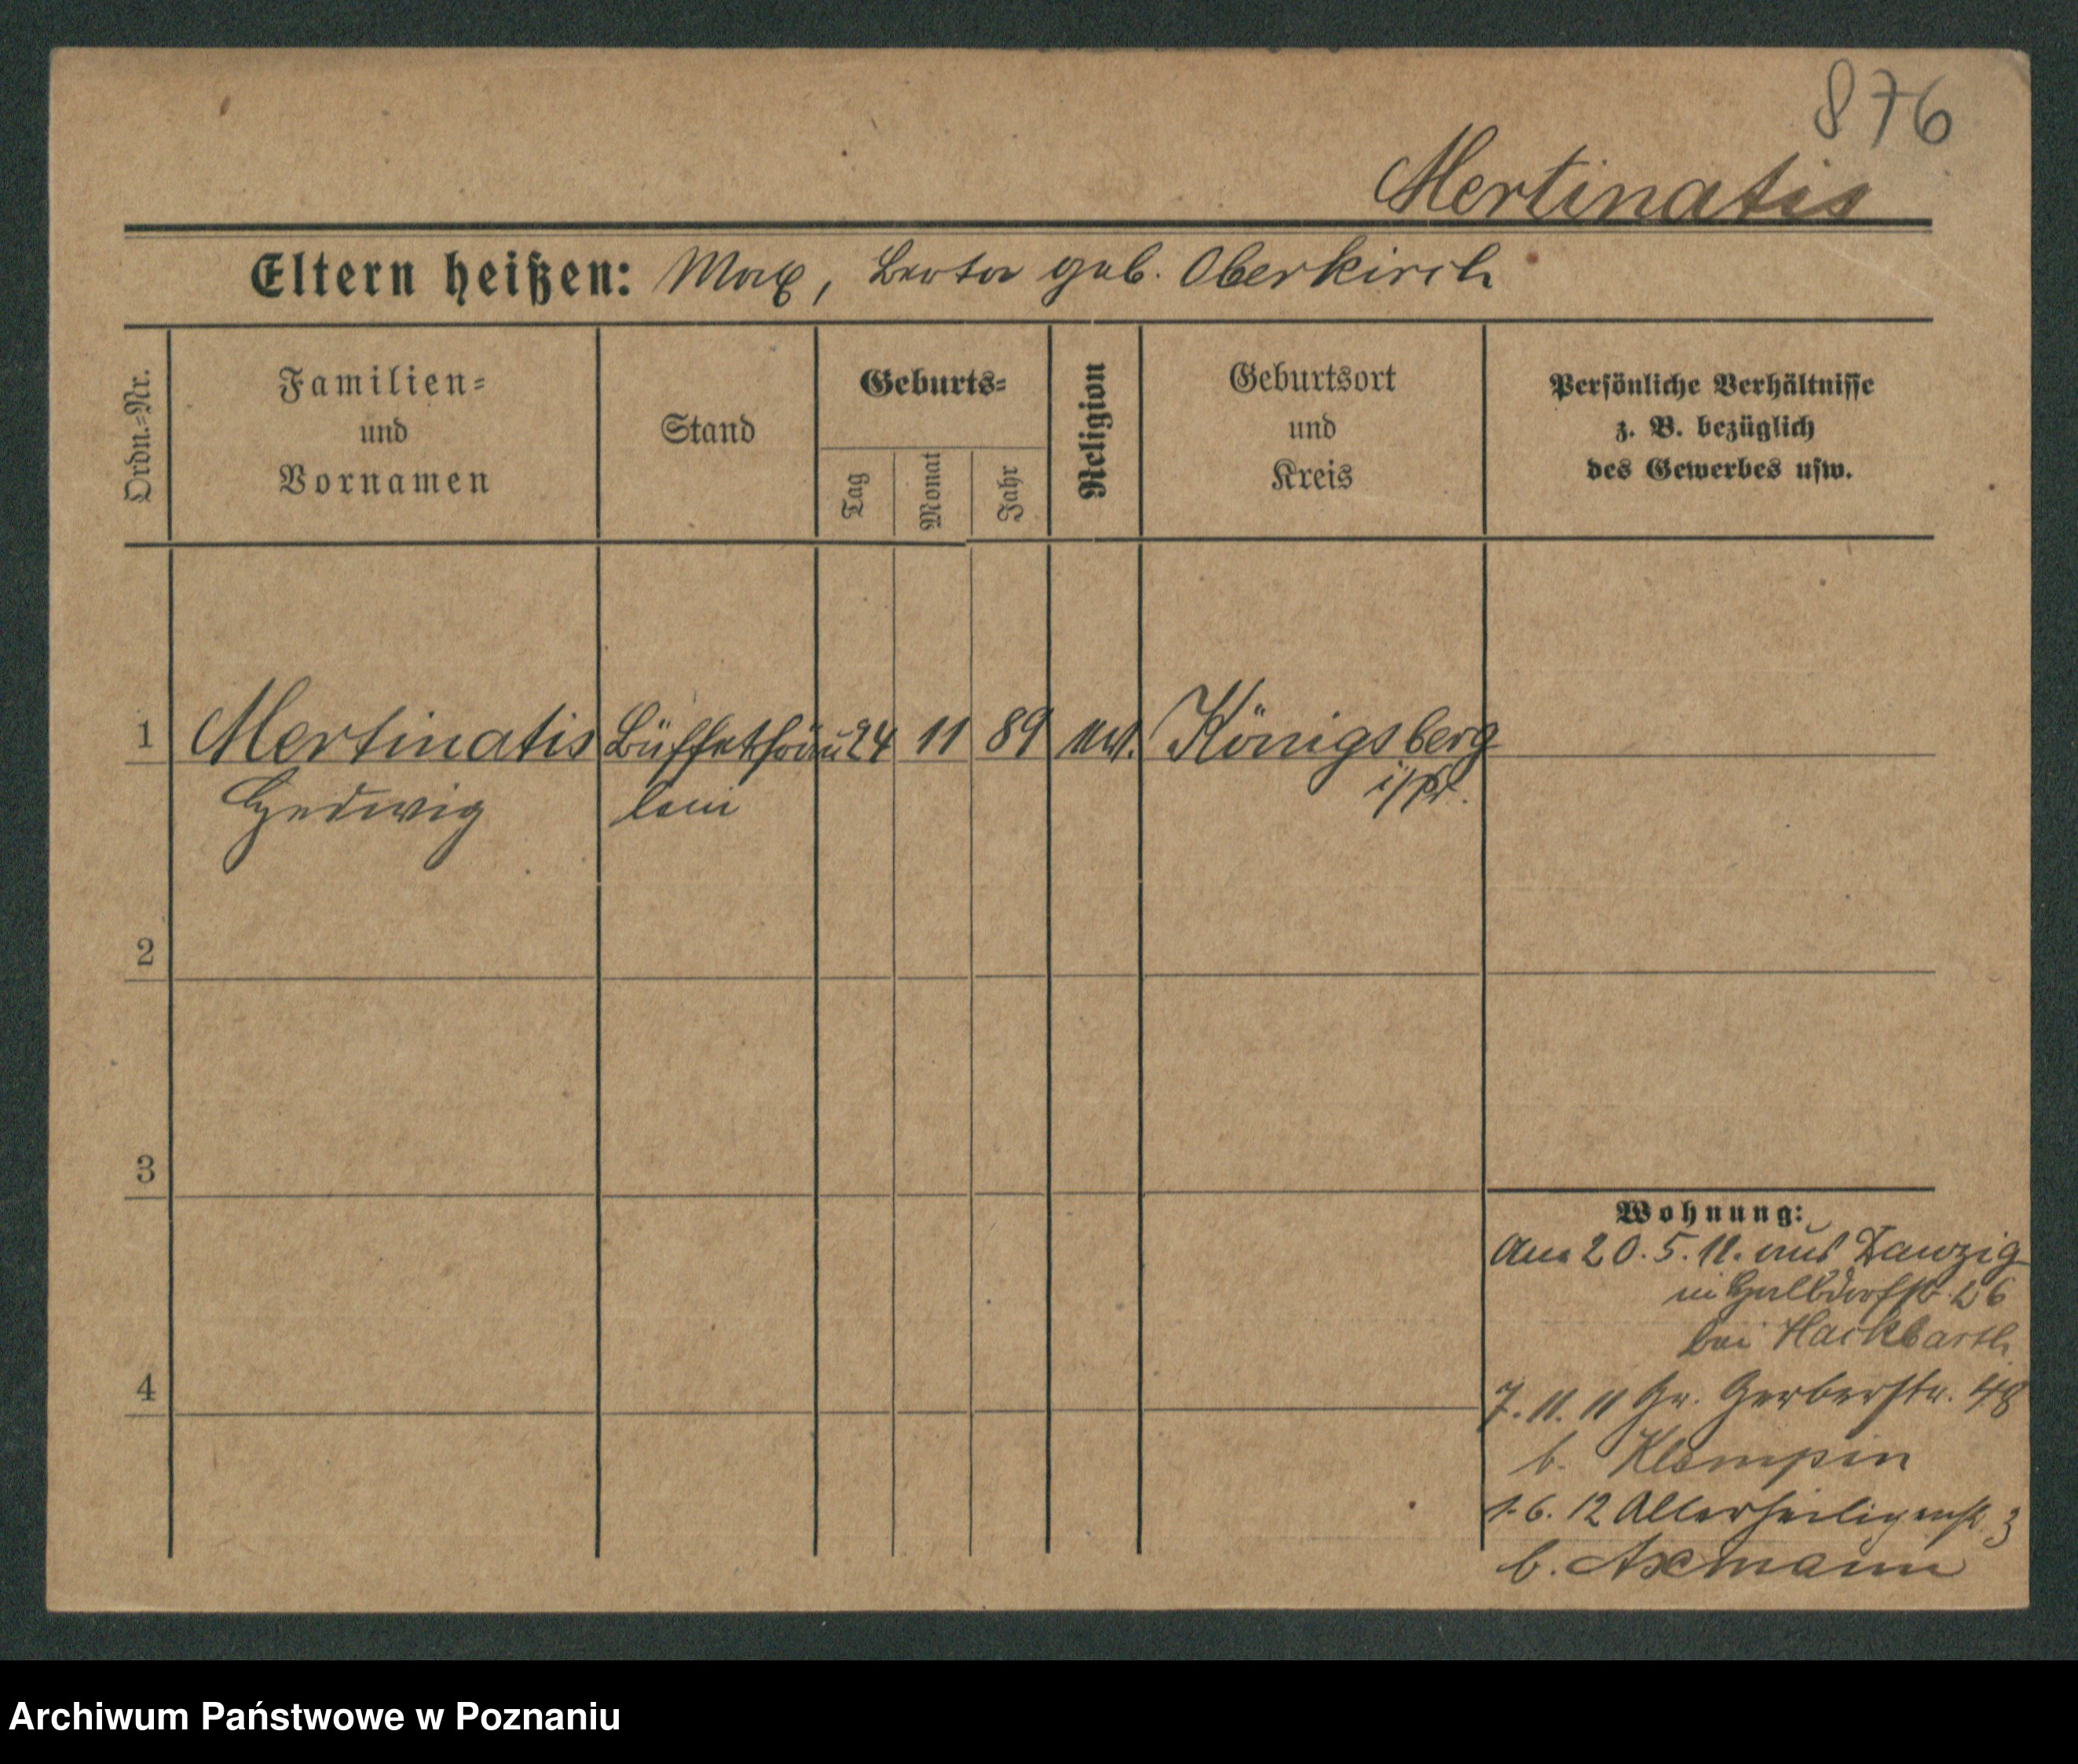 876
Mertinatis
Eltern heißen: Max, Berta geb. Oberkirch
Ordn.=Nr.
Familien=
und
Vornamen
Stand
Geburts=
Tag
Monat
Jahr
Religion
Geburtsort
und
Kreis
Persönliche Verhältnisse
z. B. bezüglich
des Gewerbes usw.
1 Mertinatis Büffetfräu 24 11 89 ev. Königsberg
Hedwig lein i/Pr.
2
3
4
Wohnung:
Am 20. 5. 11. aus Danzig
in Halbdorfstr. 26
bei Hackbarth
7. 11. 11 Gr. Gerberstr. 48
b. Klempin
1. 6. 12 Allerheiligenstr. 3
b. Axmann
Archiwum Państwowe w Poznaniu